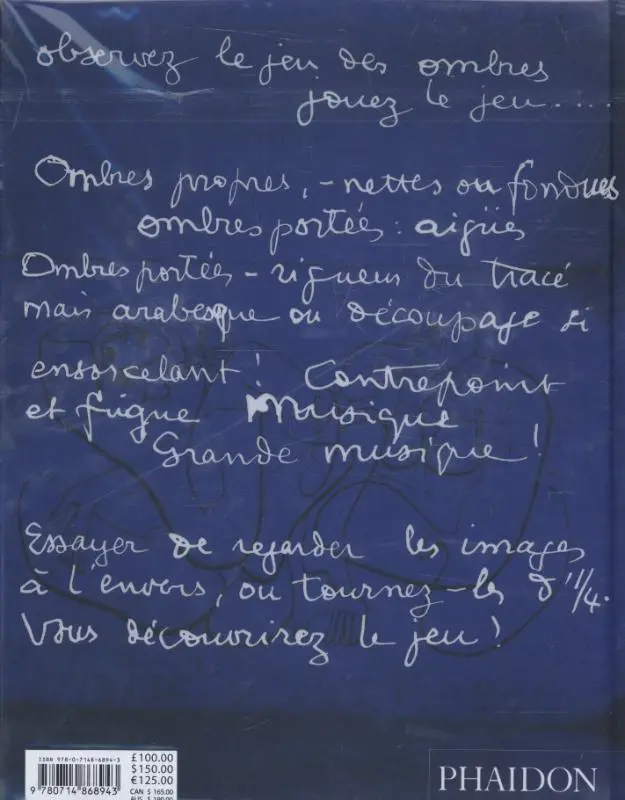 observez le jeu des ombres
jouez le jeu.....
Ombres propres, - nettes ou fondues
ombres portées : aigües
Ombres portées - rigueur du tracé
mais arabesque ou découpage si
ensorcelant ! Contrepoint
et fugue Musique
Grande musique !
Essayer de regarder les images
à l'envers, ou tournez-les d'1/4.
Vous découvrirez le jeu !
ISBN 978-0-7148-6894-3
9 780714 868943
£100.00
$150.00
€125.00
CAN $ 165.00
PHAIDON